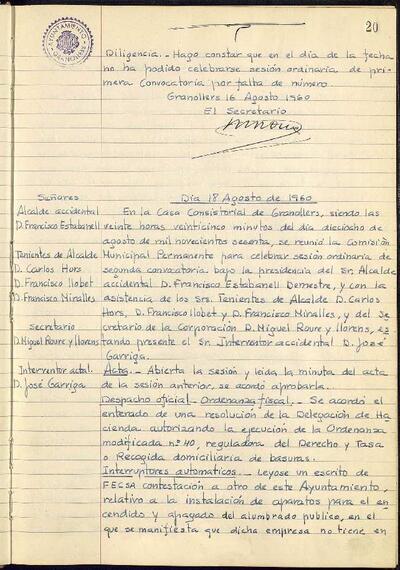 20
AYUNTAMIENTO
GRANOLLERS
Diligencia.- Hago constar que en el día de la fecha
no ha podido celebrarse sesión ordinaria de pri-
mera convocatoria por falta de número.
Granollers 16 Agosto 1960
El Secretario
Señores
Día 18 Agosto de 1960
Alcalde accidental
D. Francisco Estabanell
Tenientes de Alcalde
D. Carlos Hors
D. Francisco llobet
D. Francisco Miralles
Secretario
D. Miguel Roure y llorens
Interventor actal.
D. José Garriga
En la Casa Consistorial de Granollers, siendo las
veinte horas veinticinco minutos del día dieciocho de
agosto de mil novecientos sesenta, se reunió la Comisión
Municipal Permanente para celebrar sesión ordinaria de
segunda convocatoria bajo la presidencia del Sr. Alcalde
accidental D. Francisco Estabanell Demestre, y con la
asistencia de los Srs. Tenientes de Alcalde D. Carlos
Hors, D. Francisco llobet y D. Francisco Miralles, y del Se
cretario de la Corporación D. Miguel Roure y llorens, es-
tando presente el Sr. Interventor accidental D. José
Garriga.
Acta.- Abierta la sesión y leida la minuta del acta
de la sesión anterior, se acordó aprobarla.
Despacho oficial - Ordenanza fiscal.- Se acordó el
enterado de una resolución de la Delegación de Ha-
cienda autorizando la ejecución de la Ordenanza
modificada nº 40, reguladora del Derecho y Tasa
o Recogida domiciliaria de basuras.
Interruptores automaticos.- Leyose un escrito de
FECSA contestación a otro de este Ayuntamiento,
relativo a la instalación de aparatos para el en-
cendido y apagado del alumbrado publico, en el
que se manifiesta que dicha empresa no tiene en